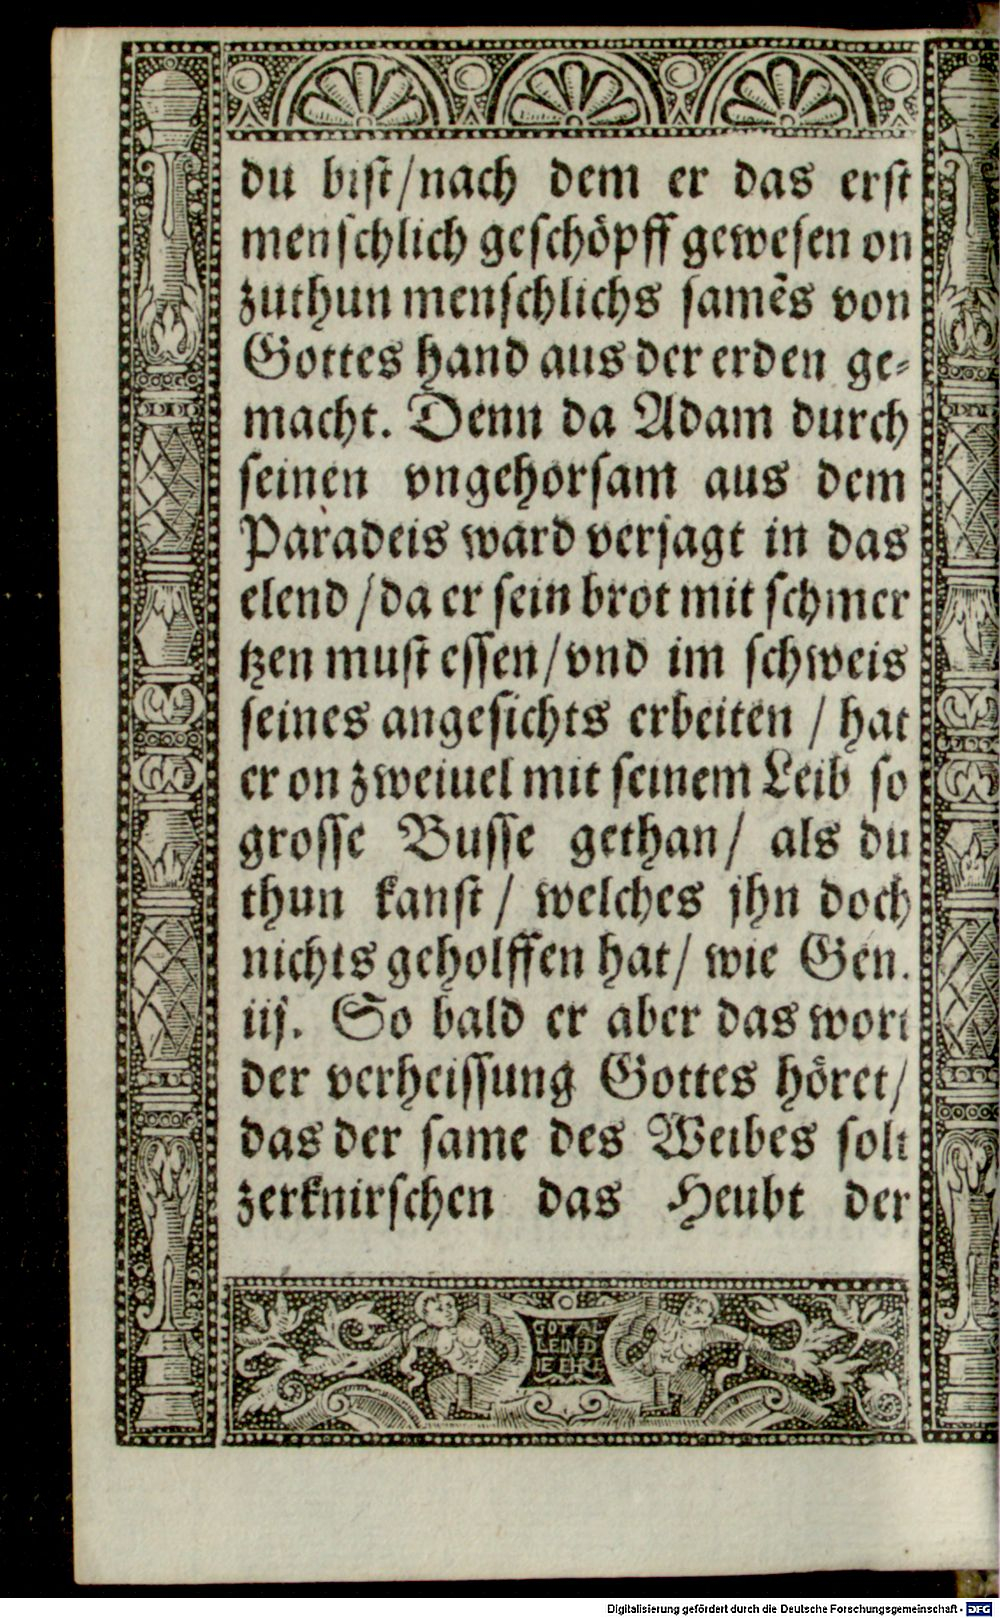 du bist/nach dem er das erst
menschlich geschöpff gewesen on
zuthun menschlichs samẽs von
Gottes hand aus der erden ge-
macht. Denn da Adam durch
seinen vngehorsam aus dem
Paradeis ward verjagt in das
elend/da er sein brot mit schmer
tzen must essen/vnd im schweis
seines angesichts erbeiten / hat
er on zweiuel mit seinem Leib so
grosse Busse gethan/ als du
thun kanst/ welches jhn doch
nichts geholffen hat/ wie Gen.
iij. So bald er aber das wort
der verheissung Gottes höret/
das der same des Weibes solt
zerknirschen das Heubt der
GOT AL
LEIN D
IE EHRE
Digitalisierung gefördert durch die Deutsche Forschungsgemeinschaft - DFG